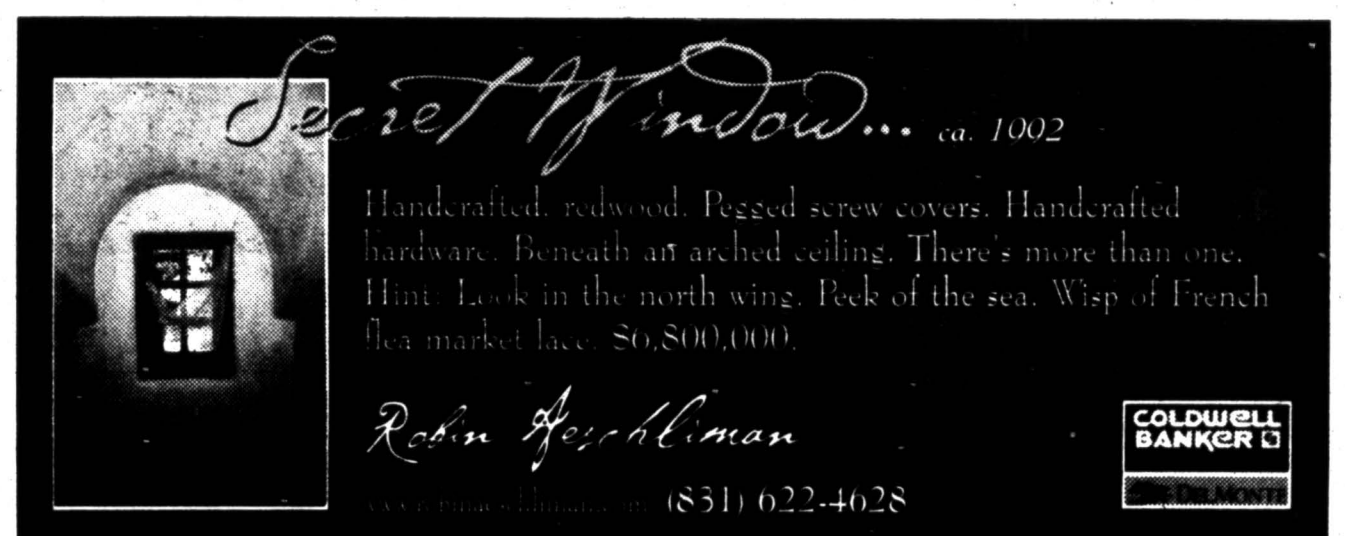 Secret Window... ca. 1992
Handcrafted, redwood. Pegged screw covers. Handcrafted
hardware. Beneath an arched ceiling. There's more than one.
Hint: Look in the north wing. Peek of the sea. Wisp of French
flea market lace. $6,800,000.
Robin Aeschliman
(831) 622-4628
COLDWELL
BANKER
DEL MONTE